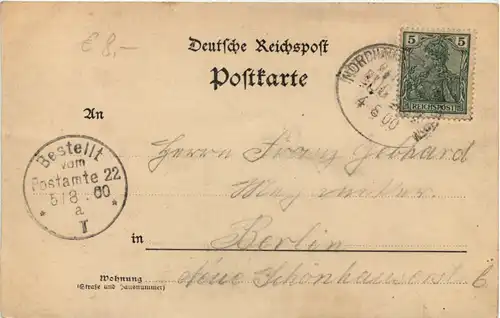 € 8,-
Deutsche Reichspost
Postkarte
5 5
REICHSPOST
An
Herrn Franz Gebhard
Bestellt
vom
Postamte 22
5/8 00
a
I
in Berlin
Wohnung
(Straße und Hausnummer)
Neue Schönhauserst 6